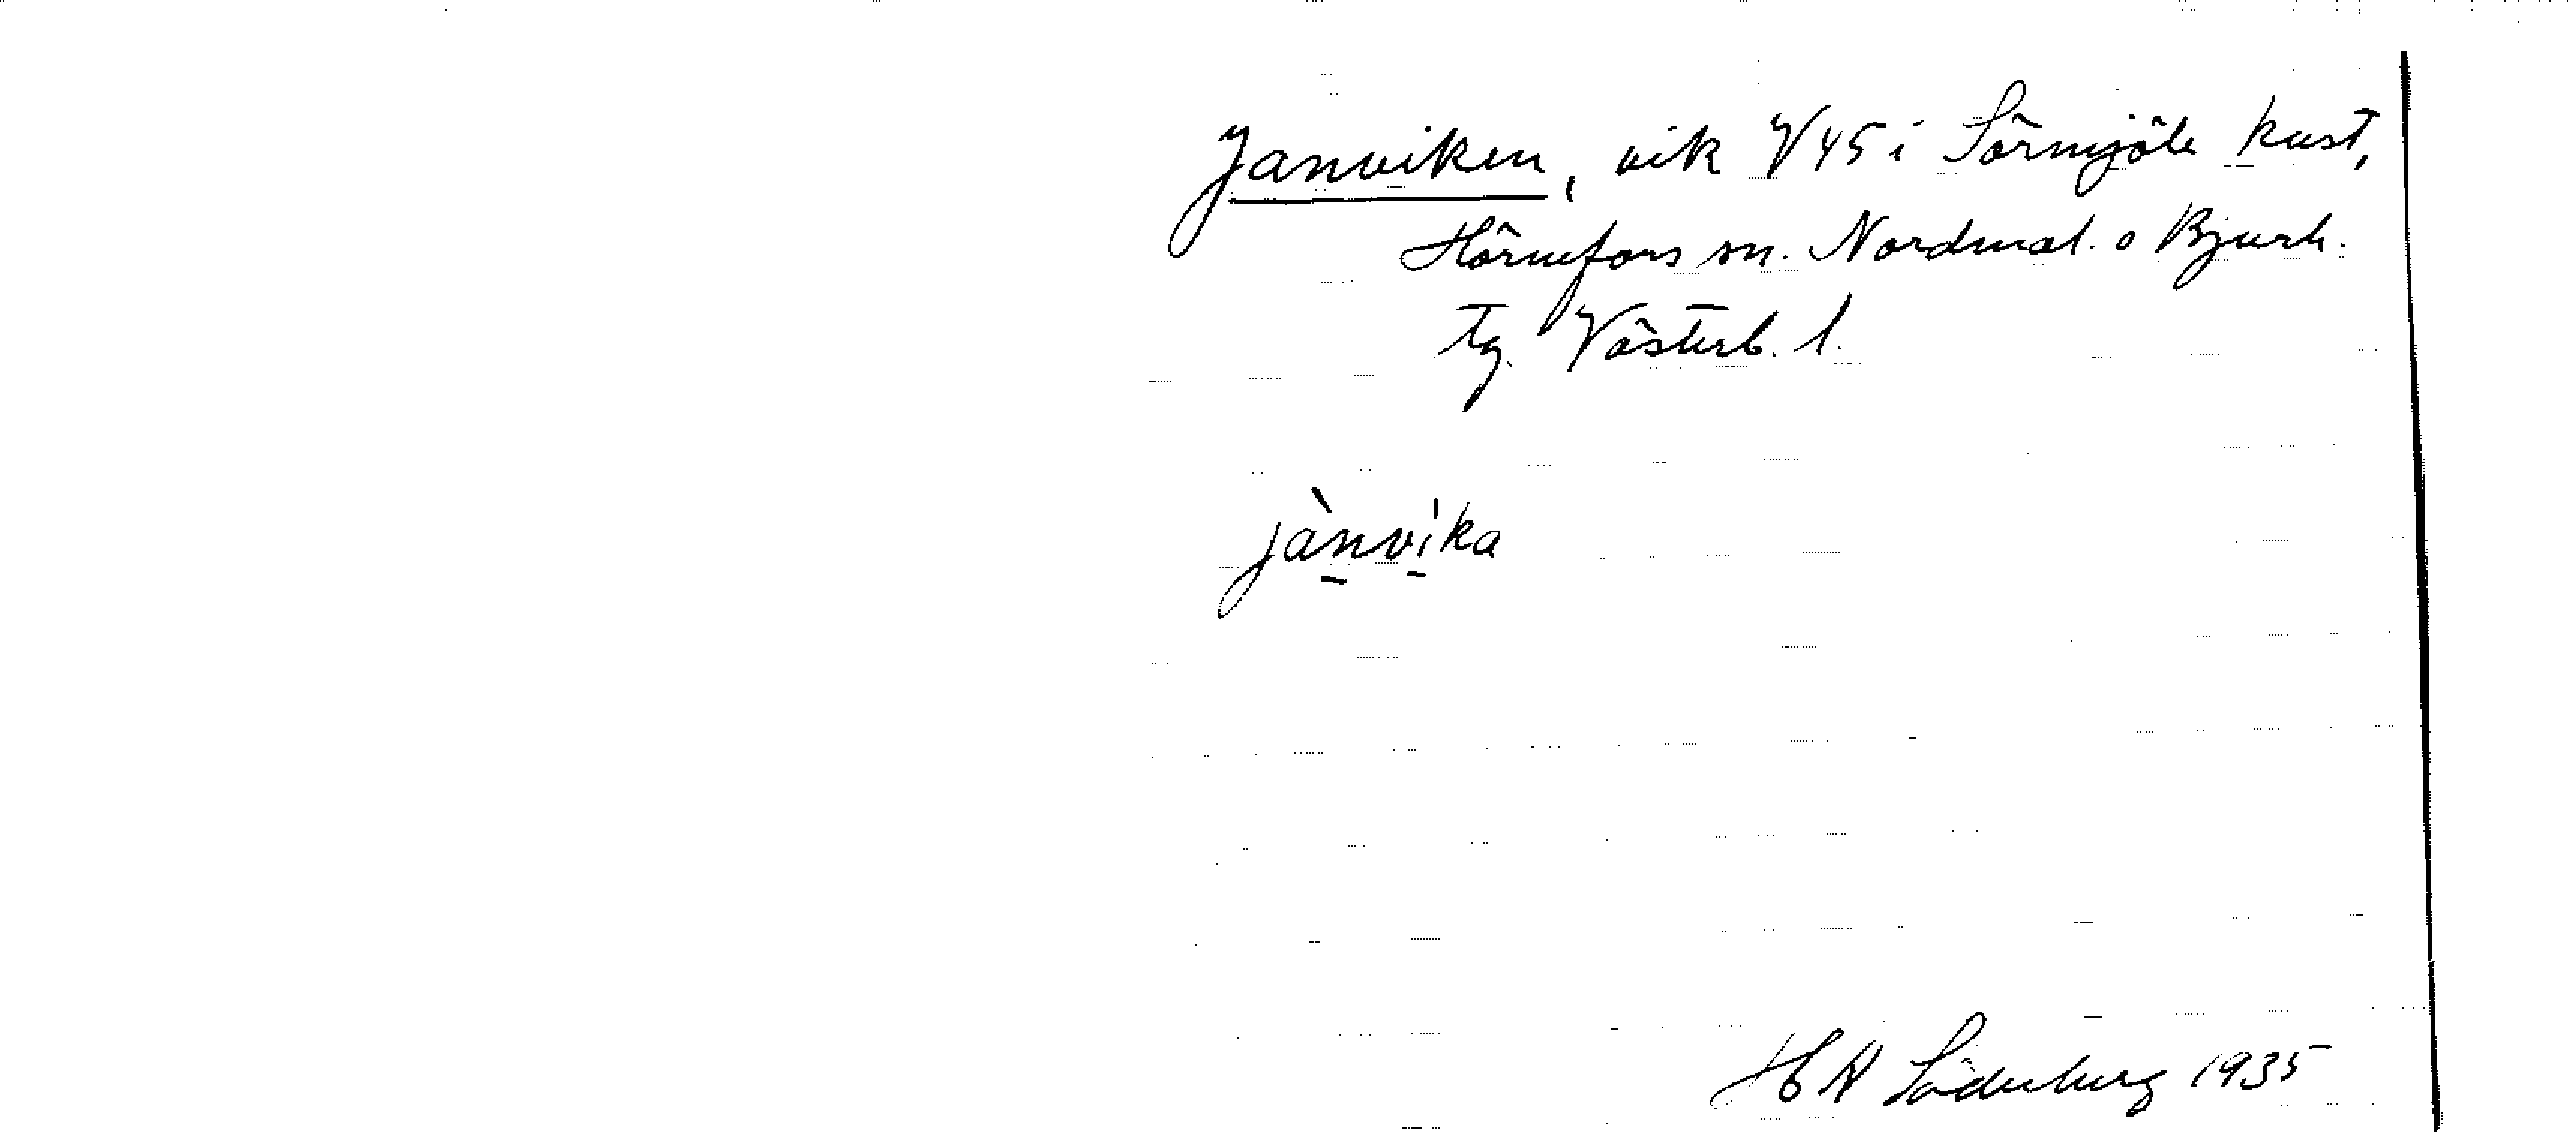 Janviken, vik V 45 i Sörmjöle kust,
Hörnefors sn. Nordmal. o Bjurh.
tg. Västerb. l.
jànvi̍ka
H A Söderberg 1935